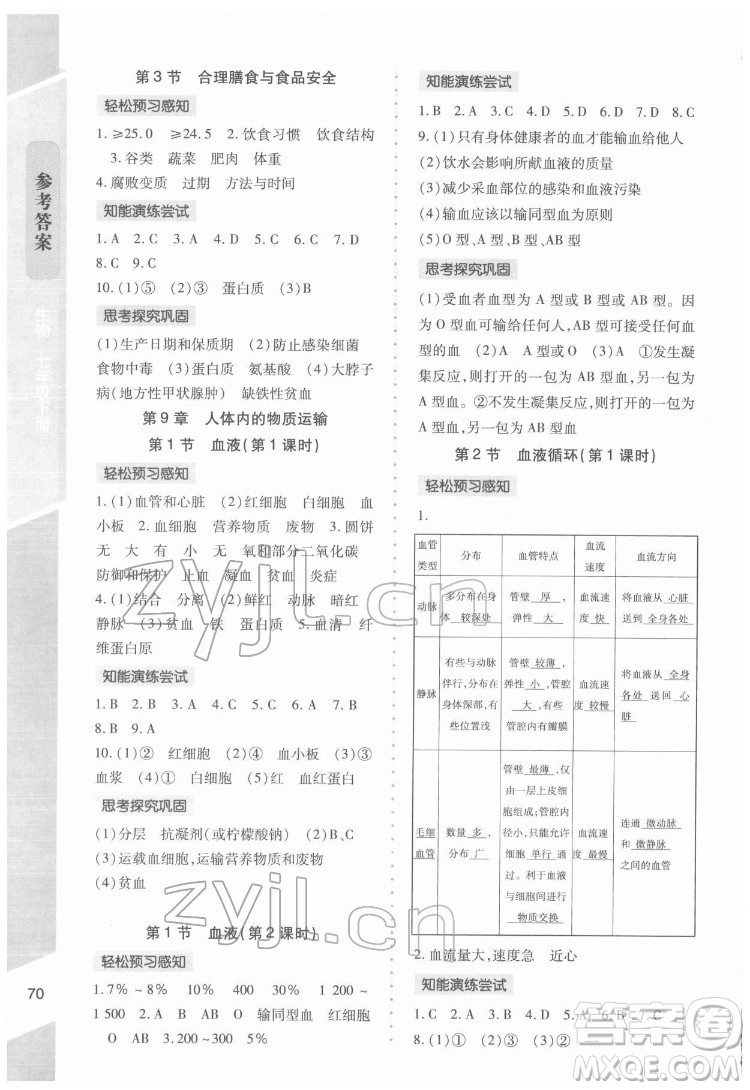 参考答案
生物 七年级下册
70
第3节 合理膳食与食品安全
轻松预习感知
1. ≥25.0 ≥24.5 2. 饮食习惯 饮食结构
3. 谷类 蔬菜 肥肉 体重
4. 腐败变质 过期 方法与时间
知能演练尝试
1. A 2. C 3. A 4. D 5. C 6. D 7. D
8. C 9. C
10. (1)⑤ (2)③ 蛋白质 (3)B
思考探究巩固
(1)生产日期和保质期 (2)防止感染细菌
食物中毒 (3)蛋白质 氨基酸 (4)大脖子
病(地方性甲状腺肿) 缺铁性贫血
第9章 人体内的物质运输
第1节 血液(第1课时)
轻松预习感知
1. (1)血管和心脏 (2)红细胞 白细胞 血
小板 2. 血细胞 营养物质 废物 3. 圆饼
无 大 有 小 无 氧和部分二氧化碳
防御和保护 止血 凝血 贫血 炎症
4. (1)结合 分离 (2)鲜红 动脉 暗红
静脉 (3)贫血 铁 蛋白质 5. 血清 纤
维蛋白原
知能演练尝试
1. B 2. B 3. A 4. C 5. A 6. C 7. B
8. B 9. A
10. (1)② 红细胞 (2)③ 血小板 (3)③
血浆 (4)① 白细胞 (5)② 血红蛋白
思考探究巩固
(1)分层 抗凝剂(或柠檬酸钠) (2)B、C
(3)运载血细胞,运输营养物质和废物
(4)贫血
第1节 血液(第2课时)
轻松预习感知
1. 7%～8% 4 000 30% 1 200～
1 500 2. A B AB O 输同型血 红细胞
O AB 3. 200～300 5%
知能演练尝试
1. B 2. A 3. C 4. D 5. D 6. D 7. D 8. C
9. (1)只有身体健康者的血才能输血给他人
(2)饮水会影响所献血液的质量
(3)减少采血部位的感染和血液污染
(4)输血应该以输同型血为原则
(5)O型、A型、B型、AB型
思考探究巩固
(1)受血者血型为 A 型或 B 型或 AB 型。
O型血可以输给任何人,AB 型可接受任何血
型的血 (2)A 型或 AB 型 (3)A ①发生凝
集反应,则打开的一包为 A 型血,另一包为
O型血 ②不发生凝集反应,则打开的一包为
O型血,另一包为 A 型血
第2节 血液循环(第1课时)
轻松预习感知
1.
血管类型 分布 血管特点 血流速度 血流方向
动脉 多分布在身体 较深处 管壁 厚 ,弹性 大 血流速度 快 将血液从 心脏 送到 全身各处
静脉 有些与动脉伴行,分布在身体深部,有些位置浅 管壁 较薄 ,弹性 小 ,管腔 大 ,有些血管内有瓣膜 血流速度 较慢 将血液从 全身各处 送回 心脏
毛细血管 数量 多 ,分布 广 管壁 最薄 ,仅由一层上皮细胞形成;管腔内径小,只能允许细胞 单行 通过。利于血液与组织间进行 物质交换 血流速度 最慢 连通 微动脉 与 微静脉 之间的血管
2. 血流量大,速度急 近心
知能演练尝试
1. C 2. C 3. D 4. A 5. A 6. B 7. C
8. (1)① (2)③ (3)②
zyjl.cn
zyjl.cn
答案圈
MXQE.COM